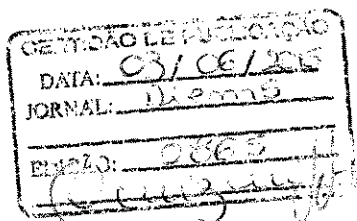 CERTIDÃO DE PUBLICAÇÃO
DATA: 03/06/2015
JORNAL: Diemns
EDIÇÃO: 0865